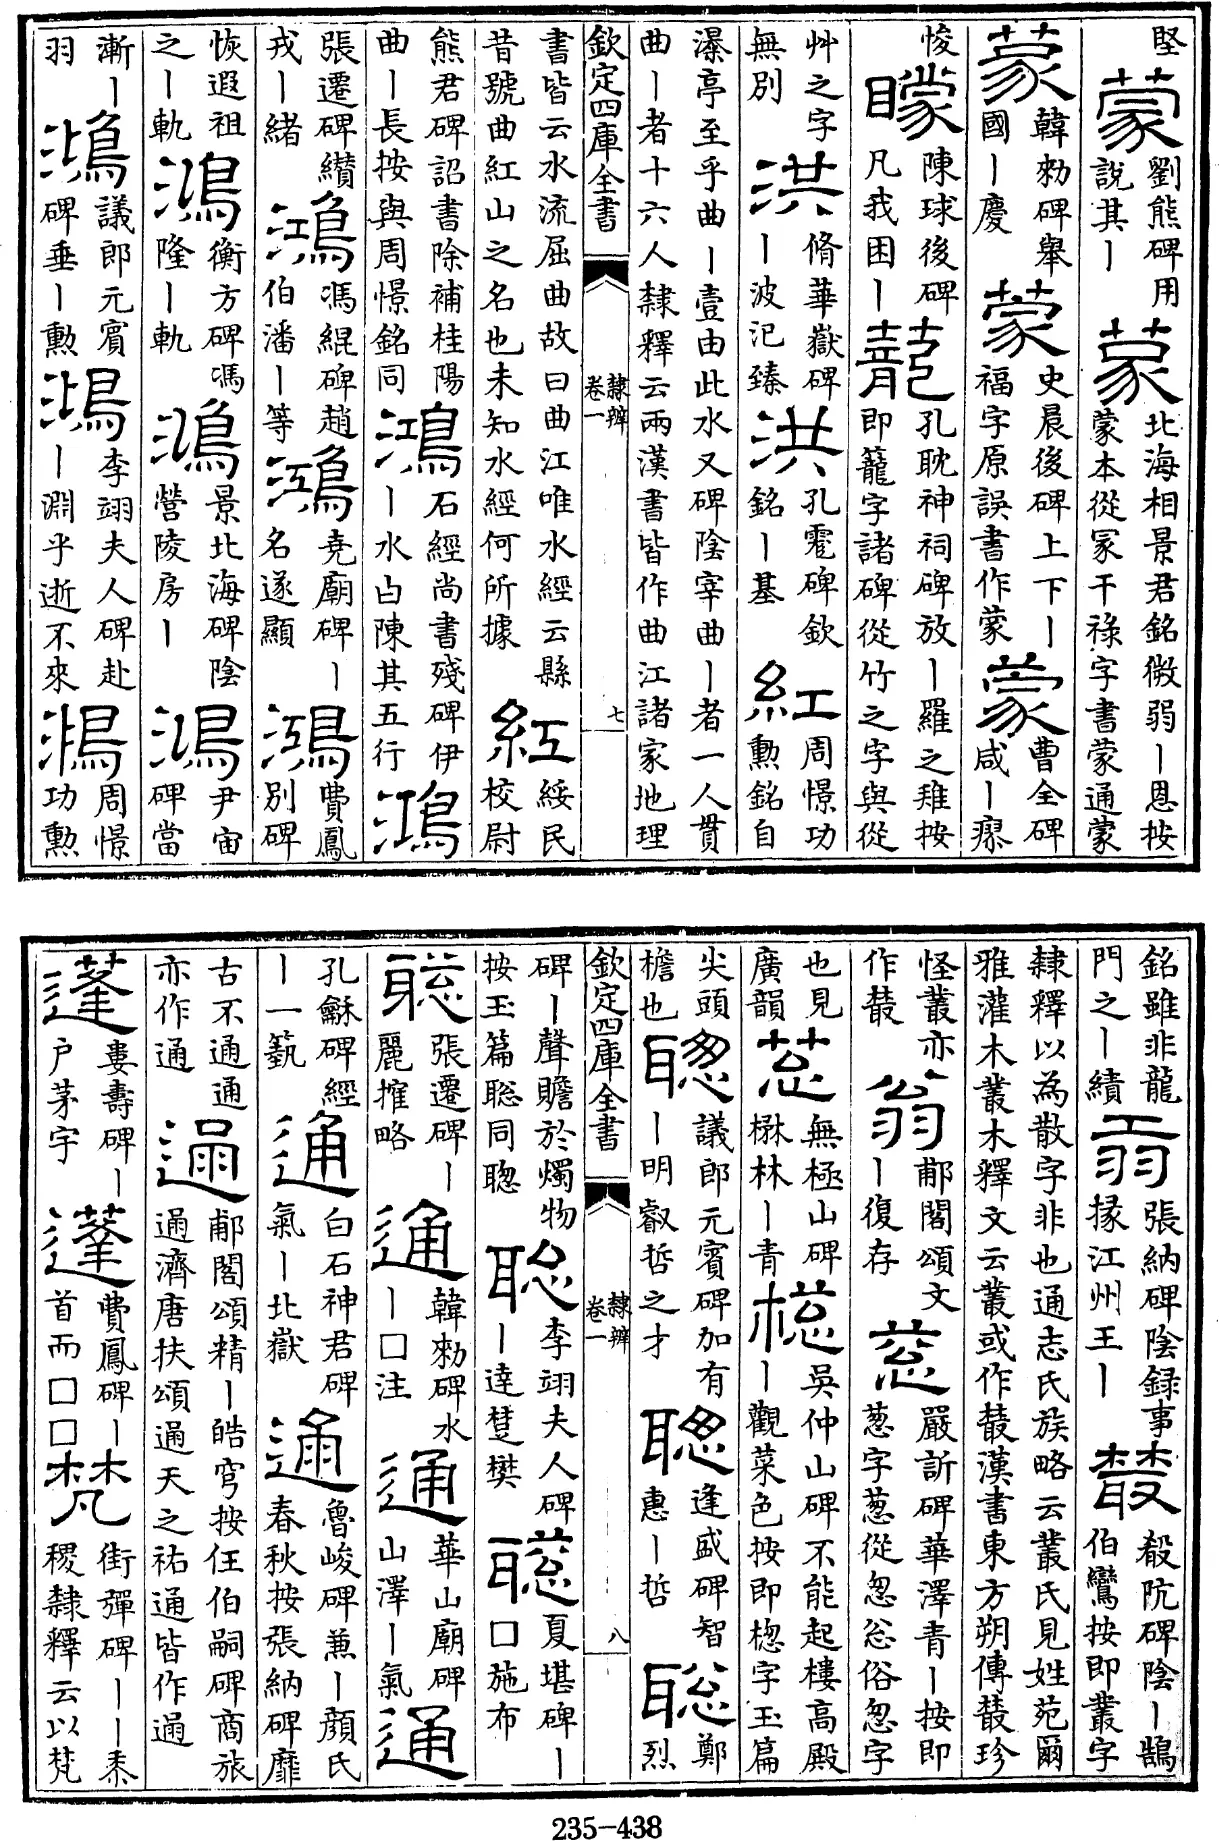 堅蒙劉熊碑用說其丨蒙北海相景君銘微弱丨恩按蒙本從冡干祿字書蒙通蒙
蒙韓勑碑舉國丨慶蒙史晨後碑上下丨福字原誤書作蒙蒙曹全碑咸丨瘝
悛矇陳球後碑凡我困丨蘢孔耽神祠碑放丨羅之雉按即籠字諸碑從竹之字與從
艸之字無別洪脩華嶽碑丨波汜臻洪孔碑欽銘丨基紅周憬功勲銘自
瀑亭至乎曲丨壹由此水又碑陰宰曲丨者一人貫曲丨者十六人隸釋云兩漢書皆作曲江諸家地理
欽定四庫全書 隸辨卷一 七
書皆云水流屈曲故曰曲江唯水經云縣昔號曲紅山之名也未知水經何所據紅綏民校尉
熊君碑詔書除補桂陽曲丨長按與周憬銘同鴻石經尚書殘碑伊丨水㠯陳其五行鴻
張遷碑纘戎丨緒鴻馮緄碑趙伯潘丨等鴻堯廟碑丨名遂顯鴻費鳳別碑
恢遐祖之丨軌鴻衡方碑馮隆丨軌鴻景北海碑陰營陵房丨鴻尹宙碑當
漸丨羽鴻議郎元賓碑垂丨勲鴻李翊夫人碑赴丨淵乎逝不來鴻周憬功勲
銘雖非龍門之丨績翁張納碑陰錄事掾江州王丨藂殽阬碑陰丨鵠伯鸞按即叢字
隸釋以為散字非也通志氏族略云叢氏見姓苑爾雅灌木叢木釋文云叢或作藂漢書東方朔傳藂珍
怪叢亦作藂翁郙閣頌文丨復存蔥嚴訢碑華澤青丨按即葱字葱從怱忩俗怱字
也見廣韻蔥無極山碑楙林丨青樬吳仲山碑不能起樓高殿丨觀菜色按即楤字玉篇
尖頭檐也聰議郎元賓碑加有丨明叡哲之才聰逢盛碑智惠丨哲聰鄭烈
欽定四庫全書 隸辨卷一 八
碑丨聲贍於燭物按玉篇聡同聰聡李翊夫人碑丨達楚樊聰夏堪碑丨口施布
聰張遷碑丨麗搉略通韓勑碑水丨口注通華山廟碑山澤丨氣通
孔龢碑經丨一蓺通白石神君碑氣丨北嶽通魯峻碑兼丨顏氏春秋按張納碑靡
古不通通亦作通通郙閣頌精丨皓穹按仼伯嗣碑商旅通濟唐扶頌通天之祐通皆作通
蓬婁壽碑丨戶茅宇蓬費鳳碑丨首而口口梵街彈碑丨丨黍稷隸釋云以梵
235-438